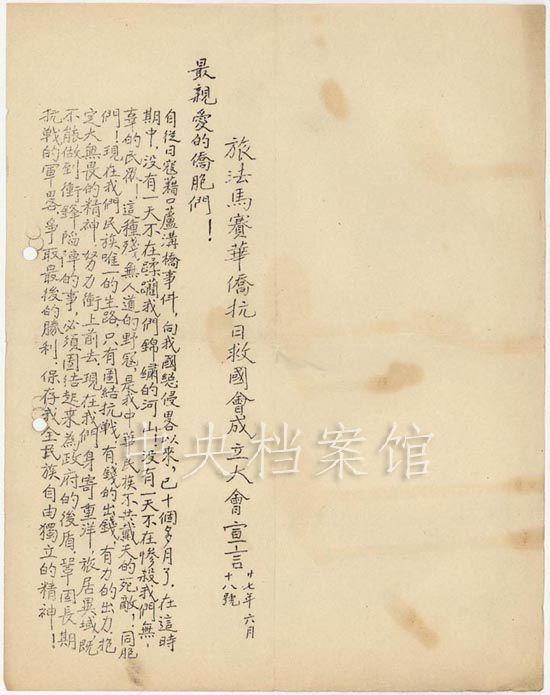 旅法馬賽華僑抗日救國會成立大會宣言
廿七年六月
十八號
最親愛的僑胞們！
自從日寇藉口蘆溝橋事件，向我國總侵畧以來，已十個多月了．在這時
期中，沒有一天不在蹂躪我們錦繡的河山，沒有一天不在慘殺我們無
辜的民眾！這種殘無人道的野寇，是我中華民族不共戴天的死敵！同胞
們！現在我們民族唯一的生路，只有團結抗戰，有錢的出錢，有力的出力，抱
定大無畏的精神，努力衝上前去．現在我們身寄重洋，旅居異域，既
不能做到衝鋒陷陣的事，必須團結起來為政府的後盾，鞏固長期
抗戰的軍畧，爭取最後的勝利，保存我全民族自由獨立的精神！
中央档案馆